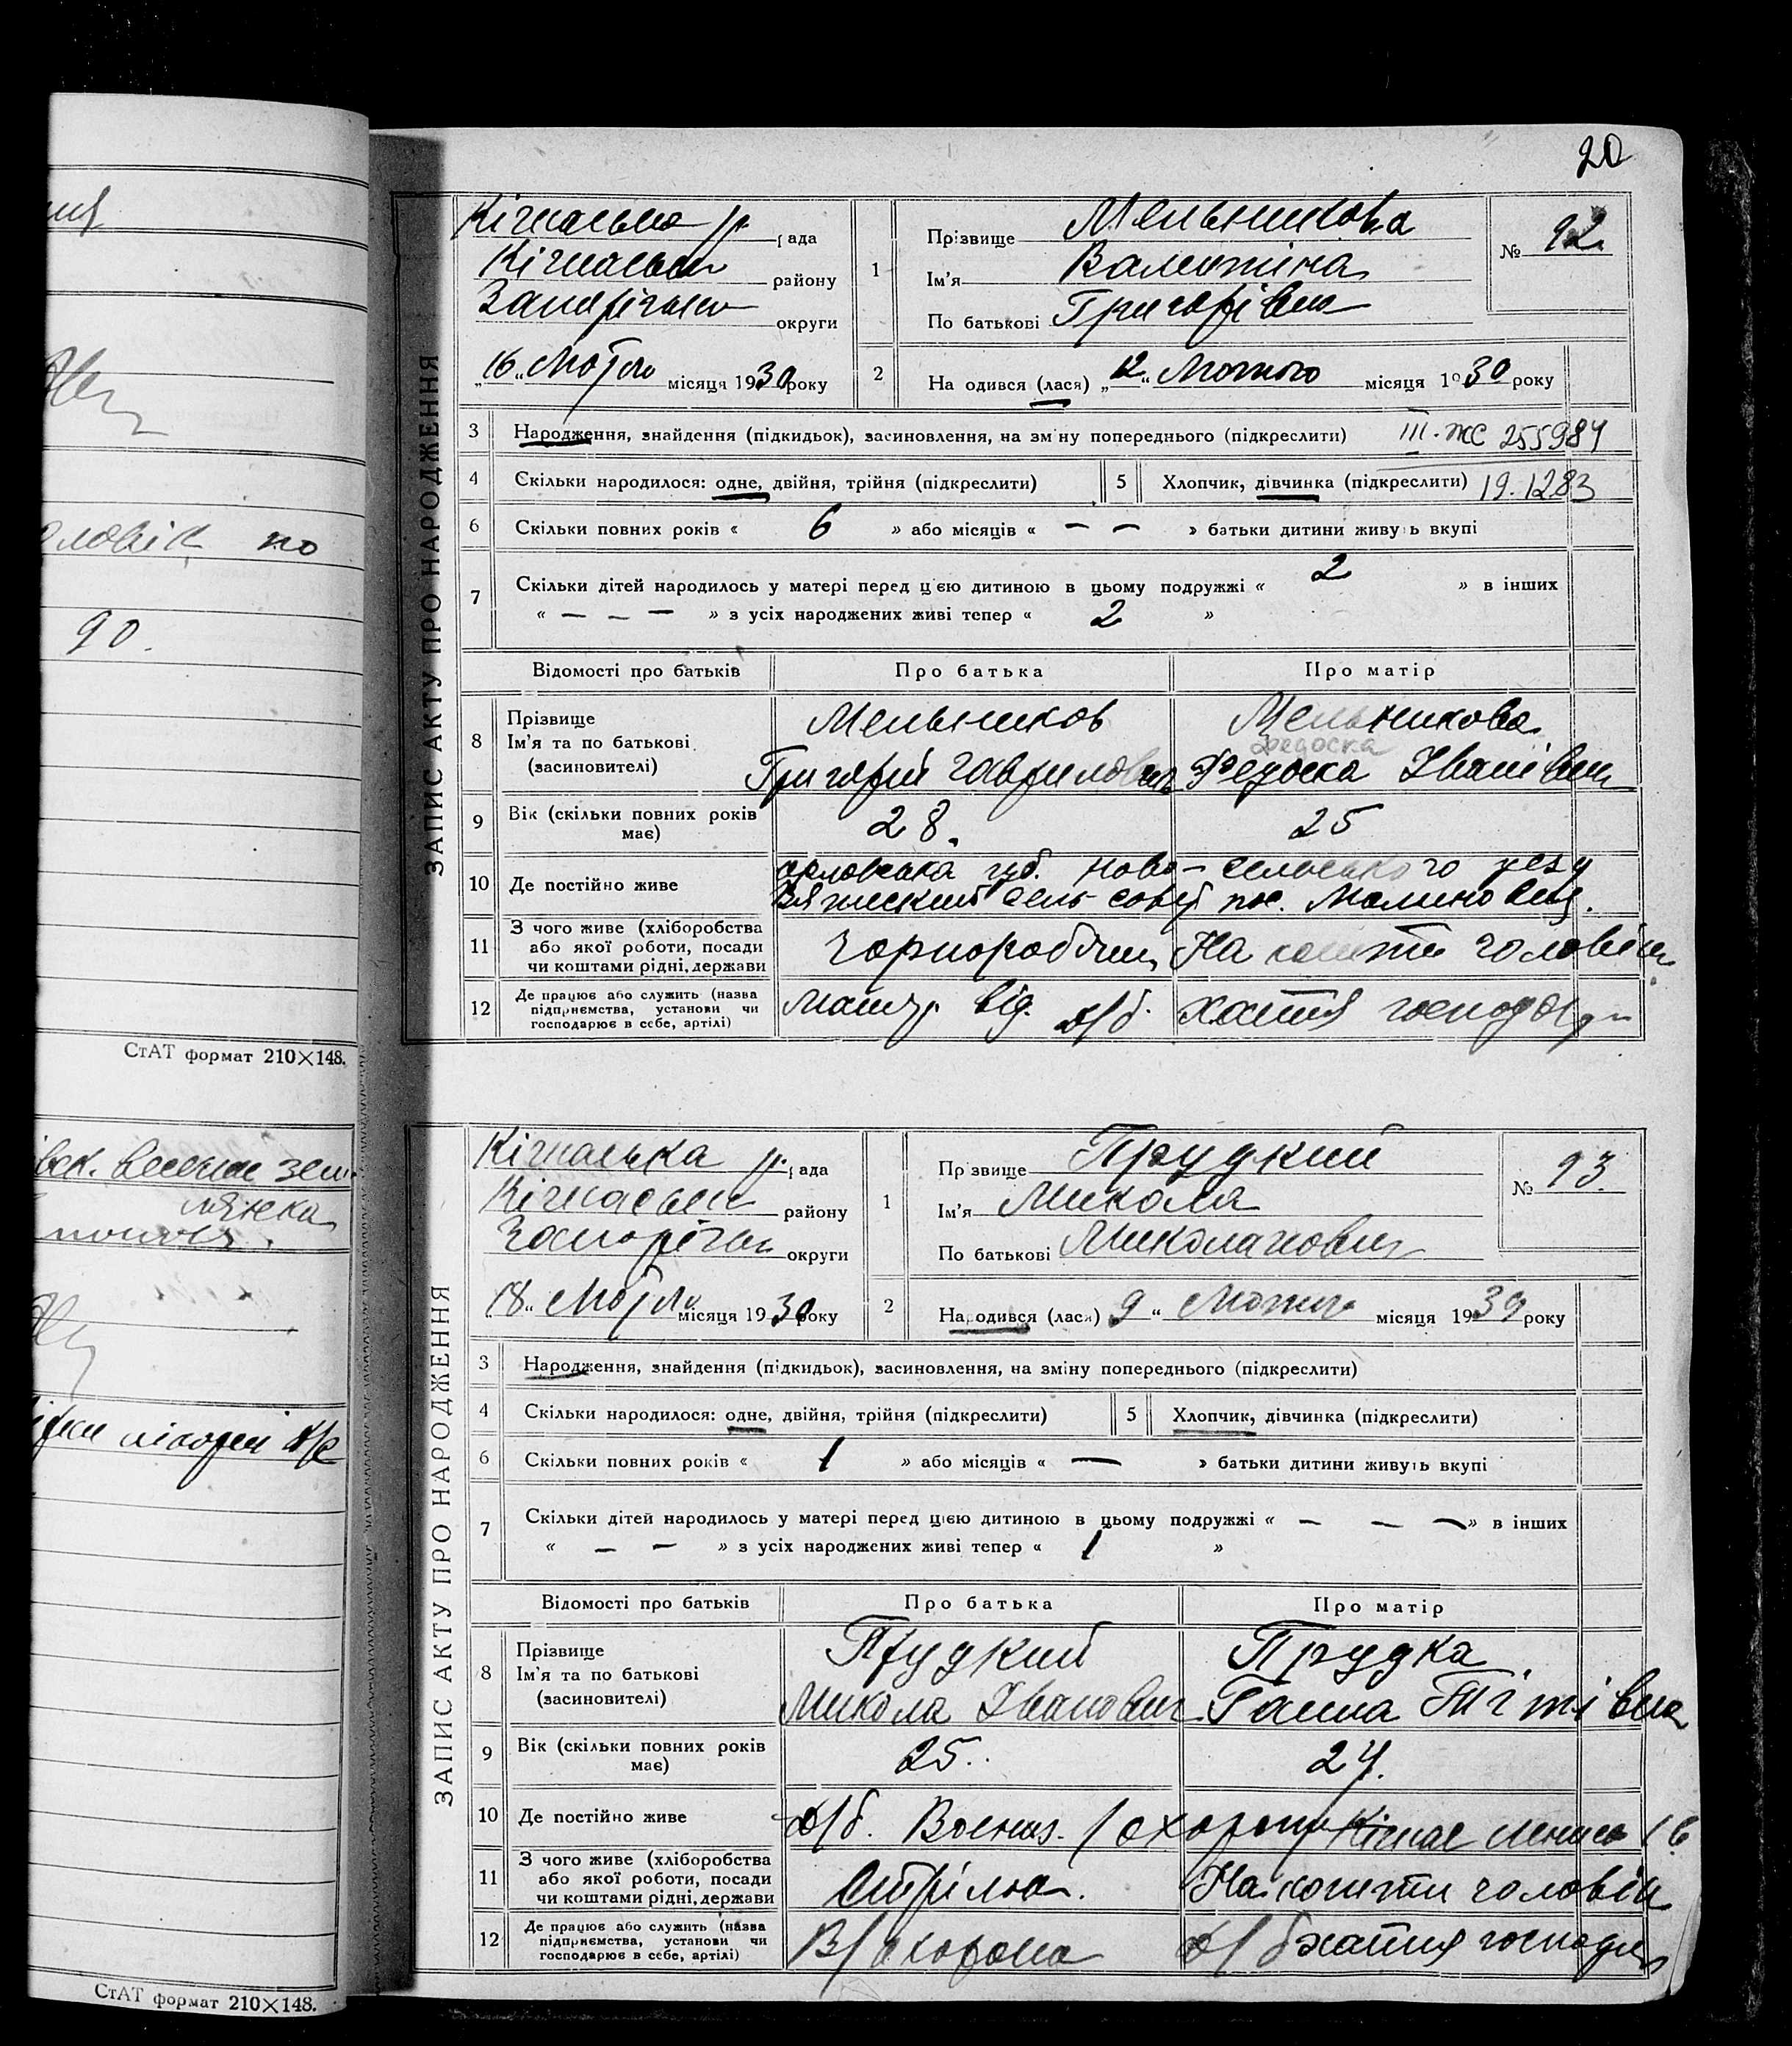 20
ЗАПИС АКТУ ПРО НАРОДЖЕННЯ
Кічкаська р. рада
Кічкаськ району
Запоріжськ округи
„16“ Лютого місяця 1930 року
1
Прізвище Мельникова
Ім'я Валентина
По батькові Григорівна
№ 92
2
На одився (лася) „12“ Лютого місяця 1930 року
3 Народження, знайдення (підкидьок), засиновлення, на зміну попереднього (підкреслити) III-ЖС 255984
4 Скільки народилося: одне, двійня, трійня (підкреслити) 5 Хлопчик, дівчинка (підкреслити) 19.1283
6 Скільки повних років « 6 » або місяців « — — » батьки дитини живуть вкупі
7 Скільки дітей народилось у матері перед цією дитиною в цьому подружжі « 2 » в інших
« — — — » з усіх народжених живі тепер « 2 »
Відомості про батьків Про батька Про матір
8 Прізвище Ім'я та по батькові (засиновителі)
Мельников Мельникова
Федоска
Григорій Гаврилович Федоска Іванівна
9 Вік (скільки повних років має) 28. 25
10 Де постійно живе орловська губ. Ново-сельського уезу
сель-совіт пос.
11 З чого живе (хліборобства або якої роботи, посади чи коштами рідні, держави Чорноробочий На кошти чоловіка
12 Де працює або служить (назва підприємства, установи чи господарює в себе, артілі) від. д/б. хатня господар
СтАТ формат 210×148.
ЗАПИС АКТУ ПРО НАРОДЖЕННЯ
Кічкаська р. рада
Кічкаськ району
Запоріжськ округи
„18“ Лютого місяця 1930 року
1
Прізвище Прудкий
Ім'я Микола
По батькові Миколайович
№ 93.
2
Народився (лася) „9“ Лютого місяця 1930 року
3 Народження, знайдення (підкидьок), засиновлення, на зміну попереднього (підкреслити)
4 Скільки народилося: одне, двійня, трійня (підкреслити) 5 Хлопчик, дівчинка (підкреслити)
6 Скільки повних років « 1 » або місяців « — » батьки дитини живуть вкупі
7 Скільки дітей народилось у матері перед цією дитиною в цьому подружжі « — — — » в інших
« — — » з усіх народжених живі тепер « 1 »
Відомості про батьків Про батька Про матір
8 Прізвище Ім'я та по батькові (засиновителі)
Прудкий Прудка
Микола Іванович Ганна Тітівна
9 Вік (скільки повних років має) 25. 24.
10 Де постійно живе д/б. охорони Кічкас
11 З чого живе (хліборобства або якої роботи, посади чи коштами рідні, держави Стрілок. На кошти чоловіка
12 Де працює або служить (назва підприємства, установи чи господарює в себе, артілі) В/охорона д/б хатня господар
СтАТ формат 210×148.
90.